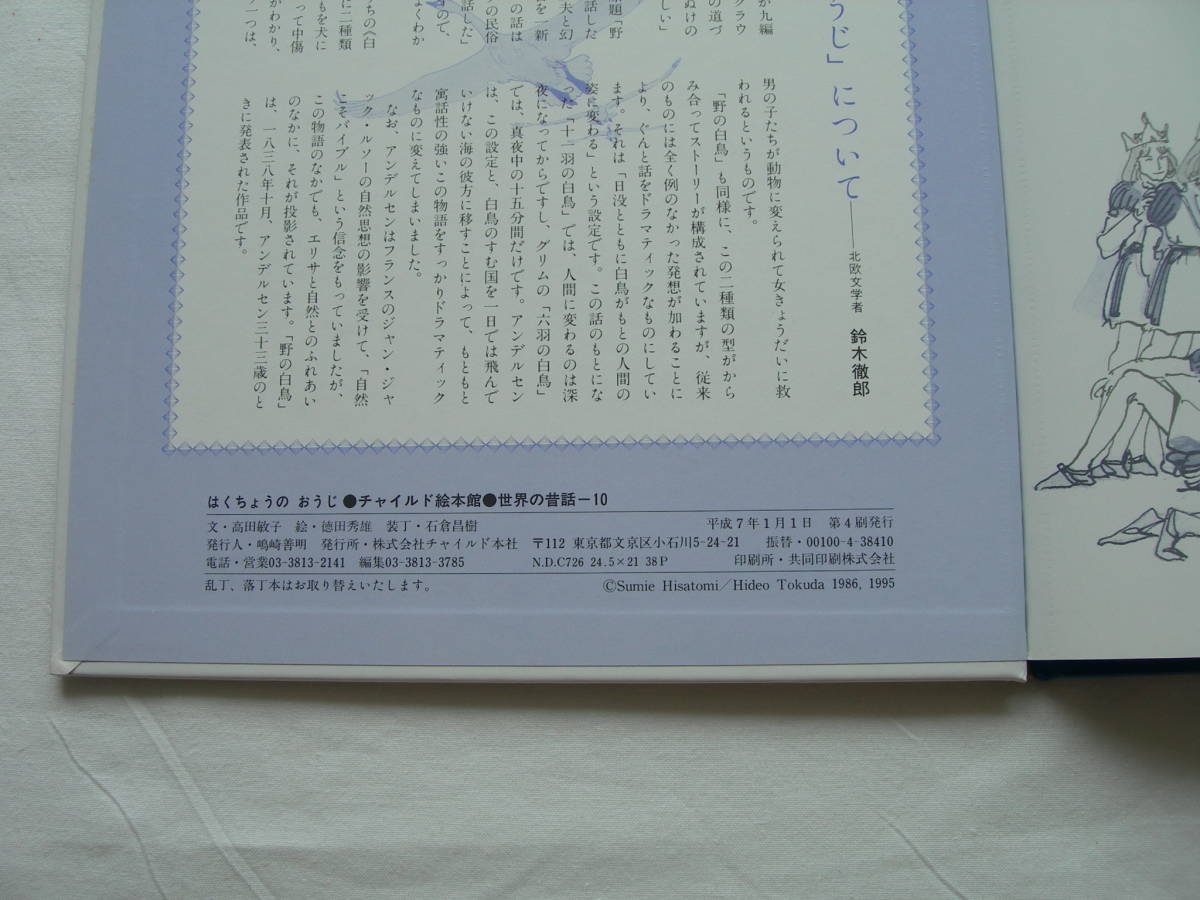 うじ」について――北欧文学者 鈴木徹郎
が九編
グラウ
の道づ
ぬけの
しい」
原題「野
話した
夫と幻
を一新
の話は
の民俗
話した」
ので、
よくわか
ちの《白
に二種類
もを犬に
って中傷
がわかり、
一つは、
男の子たちが動物に変えられて女きょうだいに救
われるというものです。
「野の白鳥」も同様に、この二種類の型がから
み合ってストーリーが構成されていますが、従来
のものには全く例のなかった発想が加わることに
より、ぐんと話をドラマティックなものにしてい
ます。それは「日没とともに白鳥がもとの人間の
姿に変わる」という設定です。この話のもとにな
った「十一羽の白鳥」では、人間に変わるのは深
夜になってからですし、グリムの「六羽の白鳥」
では、真夜中の十五分間だけです。アンデルセン
は、この設定と、白鳥のすむ国を一日では飛んで
いけない海の彼方に移すことによって、もともと
寓話性の強いこの物語をすっかりドラマティック
なものに変えてしまいました。
なお、アンデルセンはフランスのジャン・ジャ
ック・ルソーの自然思想の影響を受けて、「自然
こそバイブル」という信念をもっていましたが、
この物語のなかでも、エリサと自然とのふれあい
のなかに、それが投影されています。「野の白鳥」
は、一八三八年十月、アンデルセン三十三歳のと
きに発表された作品です。
はくちょうの おうじ●チャイルド絵本館●世界の昔話−10
文・高田敏子 絵・徳田秀雄 装丁・石倉昌樹 平成7年1月1日 第4刷発行
発行人・嶋崎善明 発行所・株式会社チャイルド本社 〒112 東京都文京区小石川5-24-21 振替・00100-4-38410
電話・営業03-3813-2141 編集03-3813-3785 N.D.C726 24.5×21 38P 印刷所・共同印刷株式会社
乱丁、落丁本はお取り替えいたします。 ©Sumie Hisatomi/Hideo Tokuda 1986, 1995